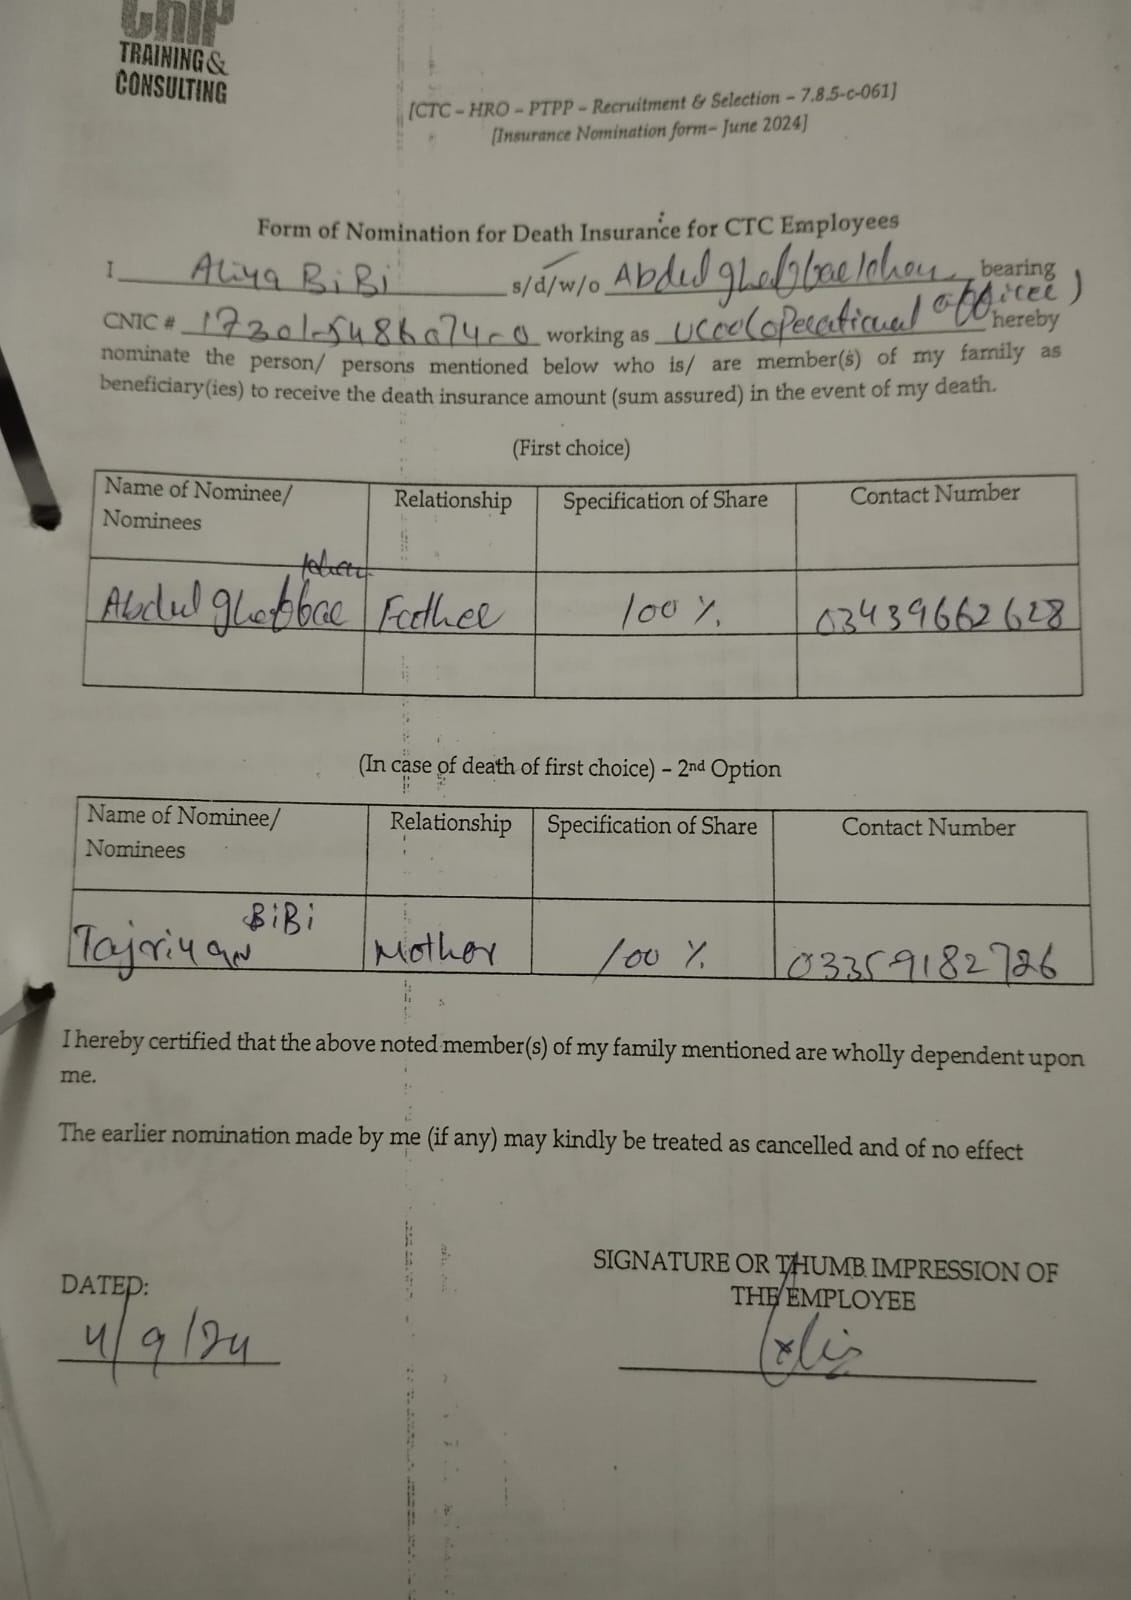 CHIP
TRAINING &
CONSULTING
[CTC – HRO – PTPP – Recruitment & Selection – 7.8.5-c-061]
[Insurance Nomination form– June 2024]
Form of Nomination for Death Insurance for CTC Employees
I Aliya BiBi s/d/w/o Abdul ghabbar khan bearing
CNIC # working as hereby
nominate the person/ persons mentioned below who is/ are member(s) of my family as
beneficiary(ies) to receive the death insurance amount (sum assured) in the event of my death.
(First choice)
Name of Nominee/ Relationship Specification of Share Contact Number
Nominees
khan
Abdul ghabbar Father 100 % 03439662628
(In case of death of first choice) – 2nd Option
Name of Nominee/ Relationship Specification of Share Contact Number
Nominees
BiBi
Tajriyan Mother 100 % 03359182726
I hereby certified that the above noted member(s) of my family mentioned are wholly dependent upon
me.
The earlier nomination made by me (if any) may kindly be treated as cancelled and of no effect
SIGNATURE OR THUMB IMPRESSION OF
THE EMPLOYEE
DATED:
4/9/24